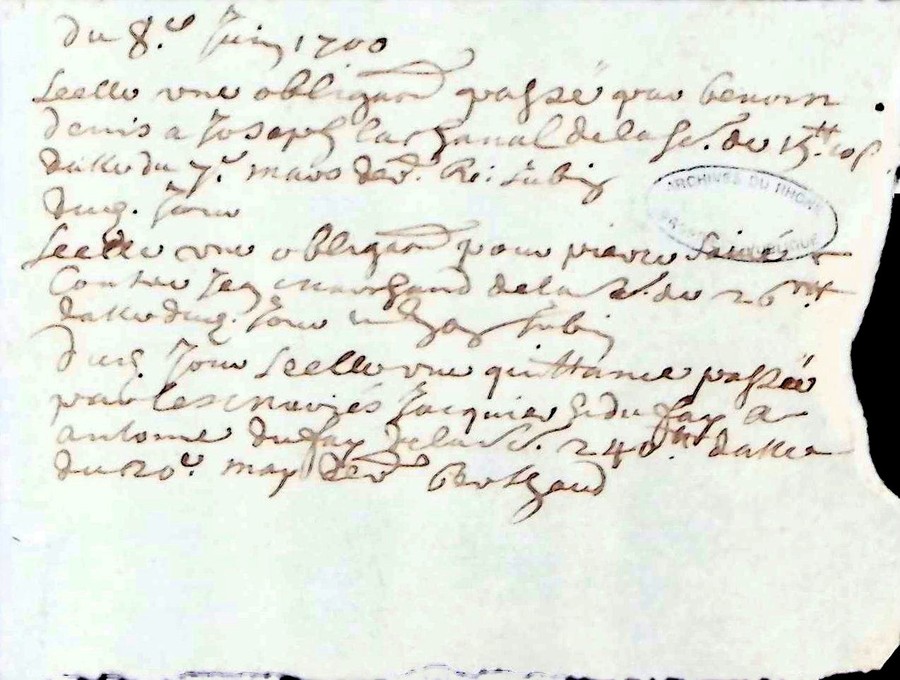 du 8.e Juin 1700
Scellé une obligaon passée par benoist
denis a Joseph Lachanal de la So. de 15.tt 10s
dattée du 7.e mars der. Re: Lubin
duq. Jour
Scellé une obligaon pour pierre
Contre Jean marchand de la So. de 26.tt
dattée duq. Jour Lubin
Duq. Jour Scellé une quittance passée
par les mariés Jacquier & dufay a
antoine dufay de la So. 240.tt dattée
du 20.e may der. Berthaud
ARCHIVES DU RHÔNE